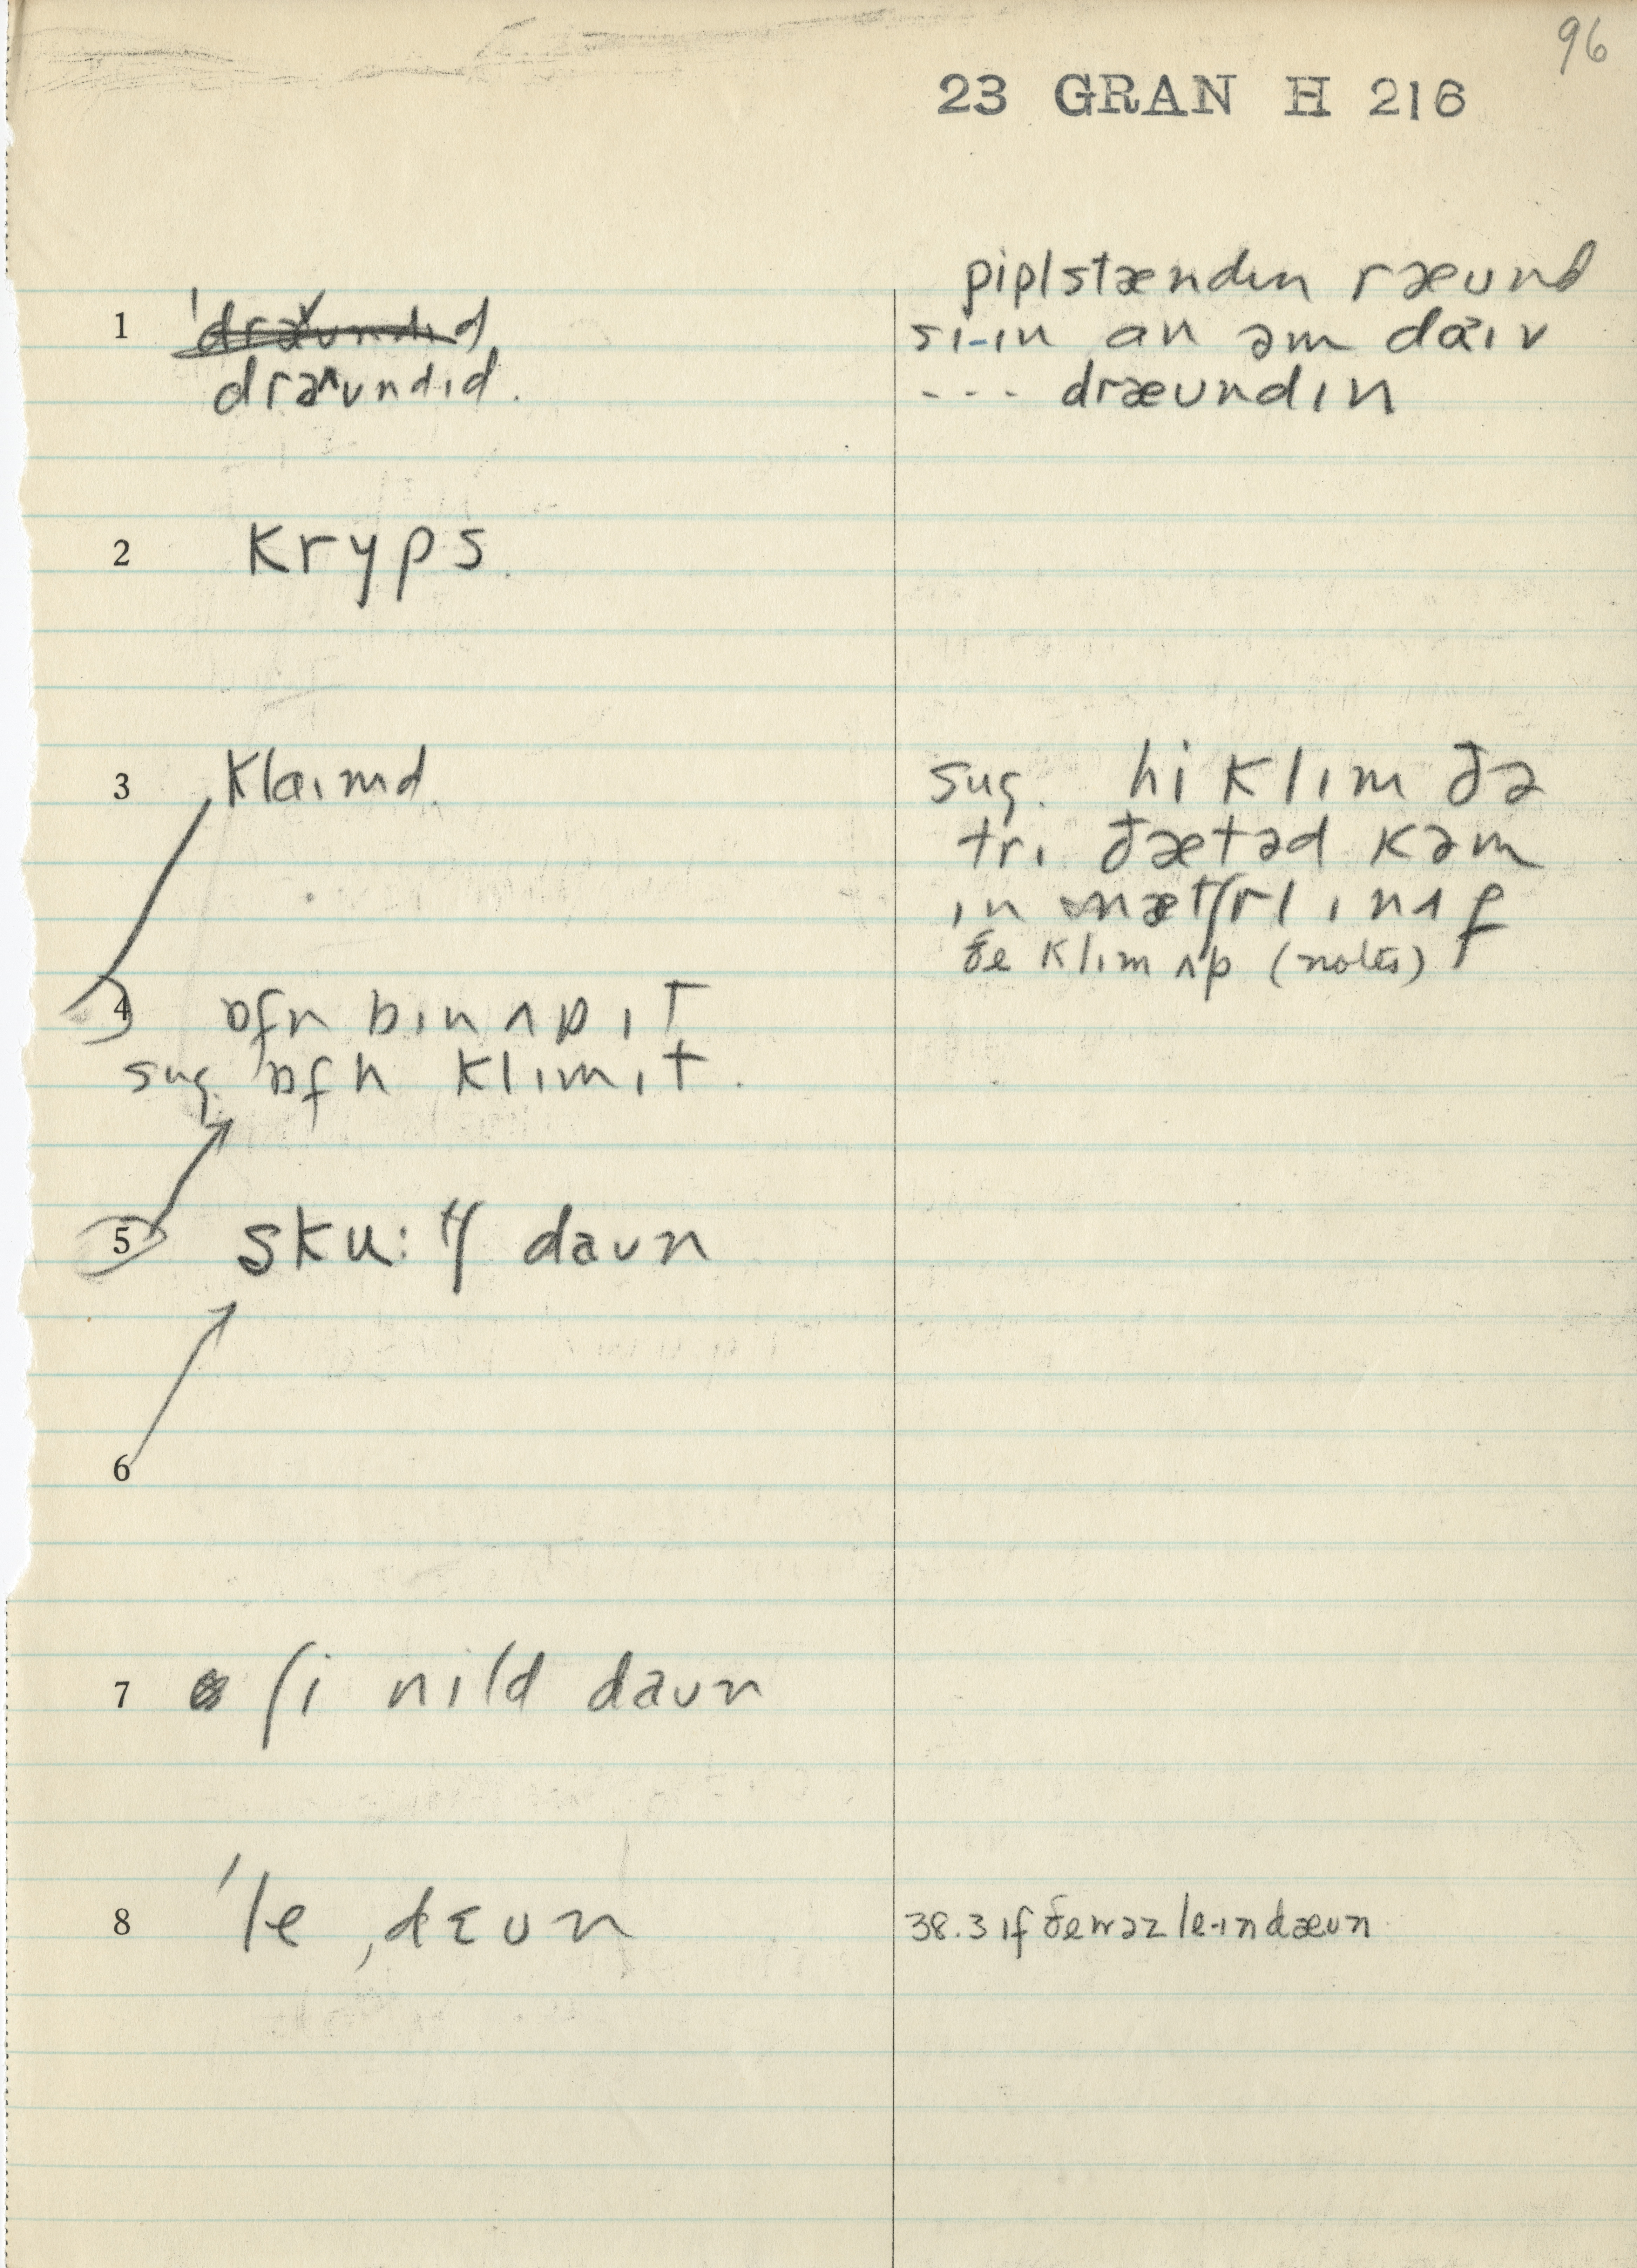 96
23 GRAN H 216
1 ˈdraʊndɪd
draʌʊndɪd.
piplstændɪn ræʊnd
si-ɪn an əm daɪv
--- dræʊndɪn
2 kryps.
3 klaɪmd.
sug. hi klɪm ðə
trɪ ðætəd kəm
ɪn nætʃrl ɪnʌf
ðe klɪm ʌp (notes)
4 ɒfn bɪn ʌp ɪt
sug. ɒfn klɪm ɪt.
5 sku:tʃ daʊn
6
7 ʃi nild daʊn
8 ˈle ˌdɛʊn
38.3 ɪf ðe wəz le-ɪn dæʊn